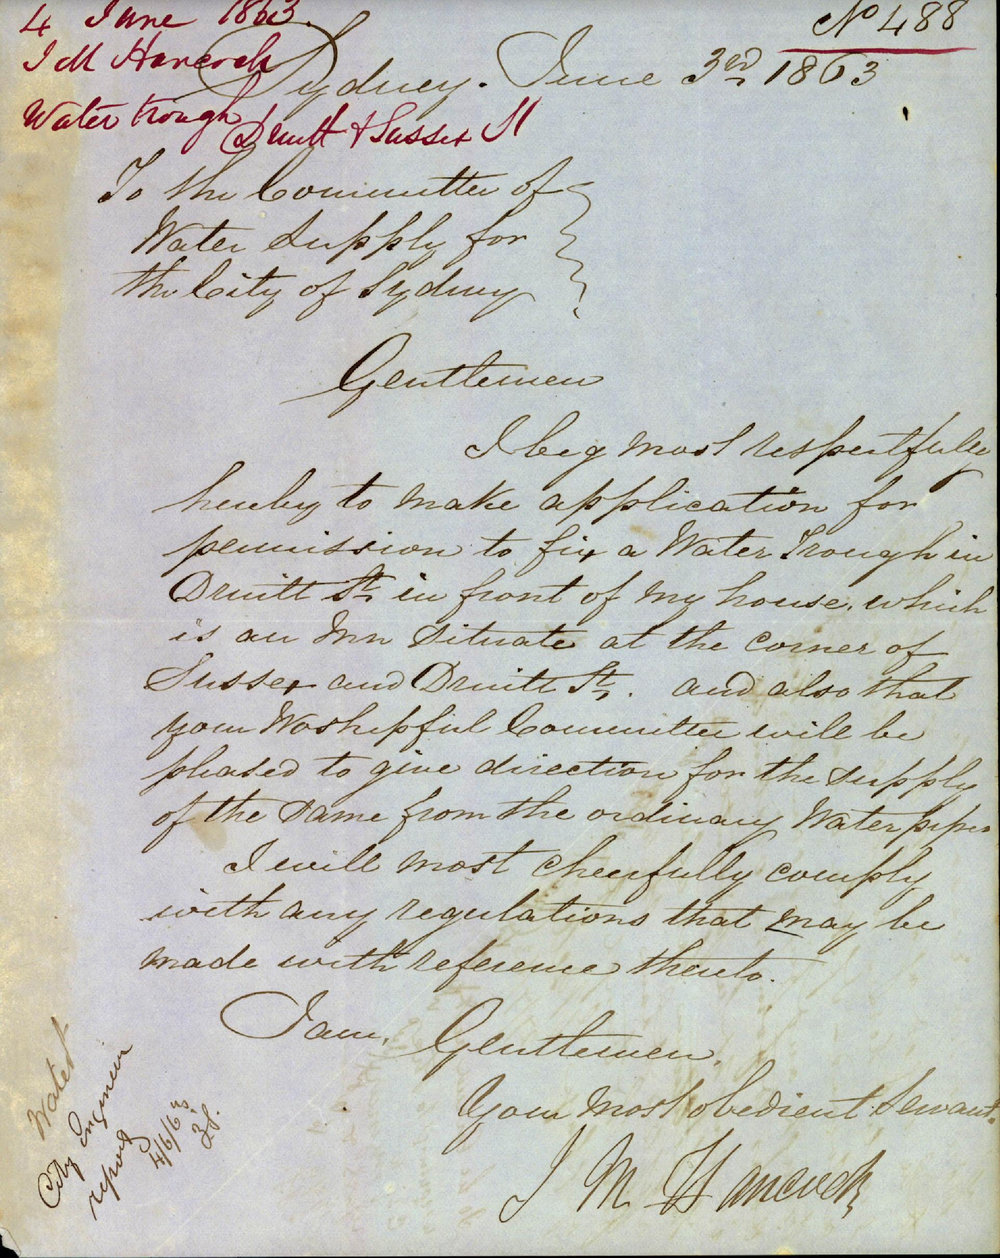 4 June 1863.
J M Hancock
Water trough
Druitt & Sussex St
No 488
Sydney. June 3rd 1863
To the Committee of
Water Supply for
the City of Sydney
Gentlemen
I beg most respectfully
hereby to make application for
permission to fix a Water Trough in
Druitt St, in front of my house, which
is an Inn situate at the corner of
Sussex and Druitt St,. and also that
your Woshipful Committee will be
pleased to give direction for the supply
of the same from the ordinary Water pipes
I will most cheerfully comply
with any regulations that may be
made with reference thereto.
I am, Gentlemen,
Your most obedient Servant.
J M Hancock
Water
City Engineer
report
4/6/6